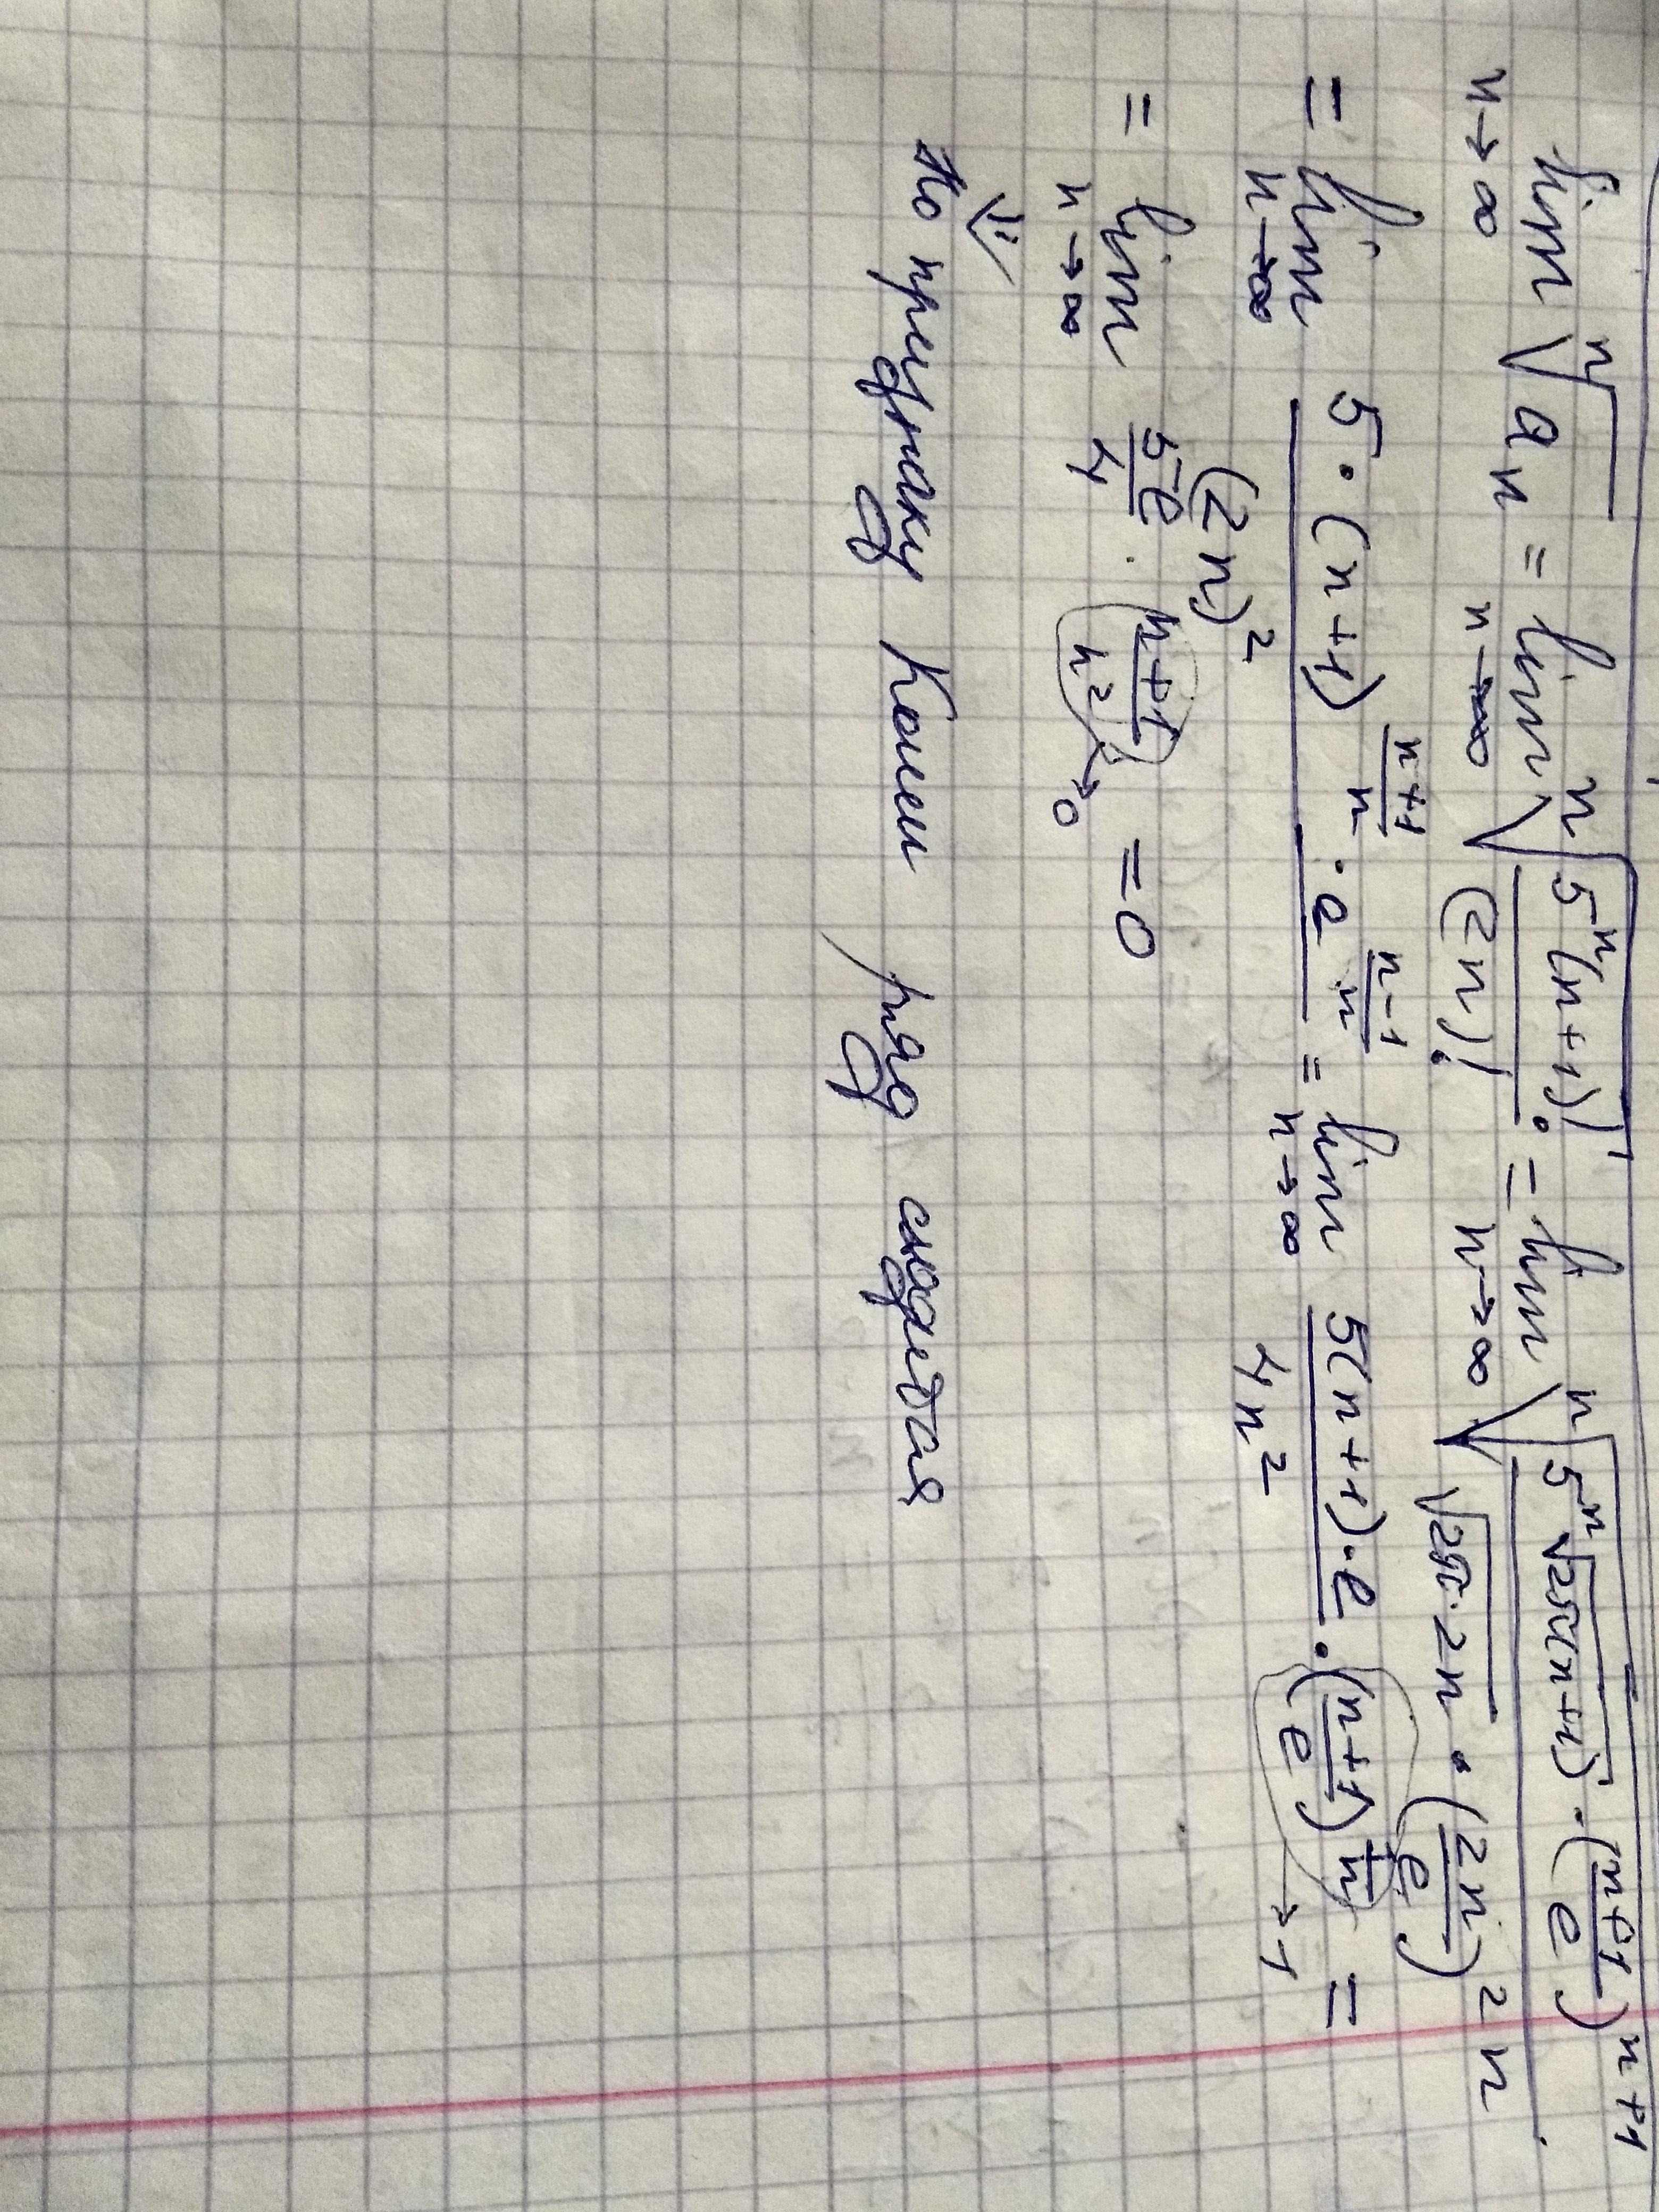 lim n→∞ ⁿ√aₙ = lim n→∞ ⁿ√(5ⁿ(n+1)! / (2n)!) = lim n→∞ ⁿ√(5ⁿ√(2π(n+1)) · ((n+1)/e)ⁿ⁺¹ / (√(2π·2n) · (2n/e)²ⁿ))
= lim n→∞ (5·(n+1)^((n+1)/n) · e^((n-1)/n)) / (2n)² = lim n→∞ (5(n+1)·e / 4n²) · ((n+1)/e)^(1/n) → 1 =
= lim n→∞ (5e/4) · ((n+1)/n²) → 0 = 0
⇓
По признаку Коши ряд сходится